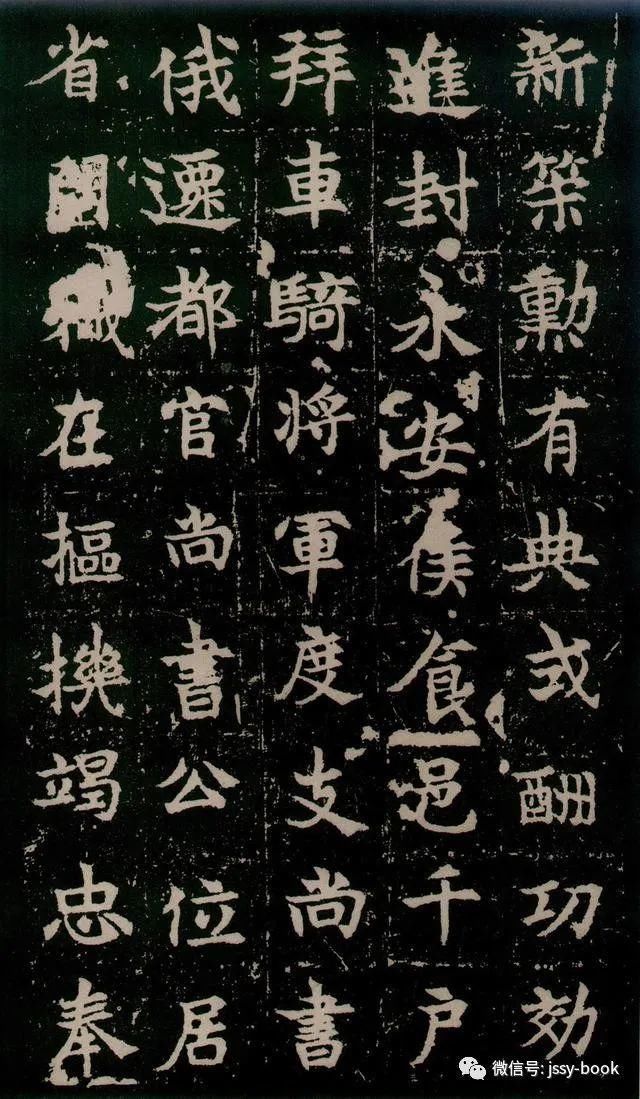 新築勳有典或酬功効
進封永安侯食邑千户
拜車騎將軍度支尚書
俄遷都官尚書公位居
省閣職在樞機竭忠奉
微信号: jssy-book